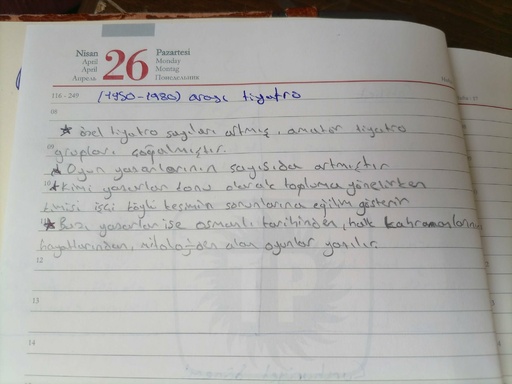 Nisan
April
April
Апрель
26
Pazartesi
Monday
Montag
Понедельник
116 - 249
(1950-1980) arası tiyatro
08
★ özel tiyatro sayıları artmış, amatör tiyatro
09
grupları çoğalmıştır.
★ Oyun yazarlarının sayısıda artmıştır
10
★ Kimi yazarlar konu olarak topluma yönelirken
kimisi işçi köylü kesimin sorunlarına eğilim gösterir
★ Bazı yazarlar ise osmanlı tarihinden, halk kahramanlarının
hayatlarından, mitolojiden alan oyunlar yazılır
12
13
14